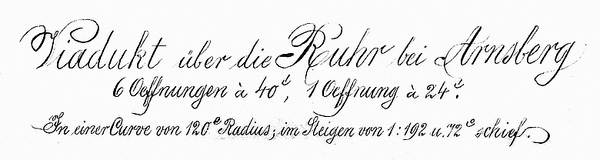 Viadukt über die Ruhr bei Arnsberg
6 Oeffnungen à 40', 1 Oeffnung à 24'.
In einer Curve von 120° Radius; im Steigen von 1:192 u. 72° schief.